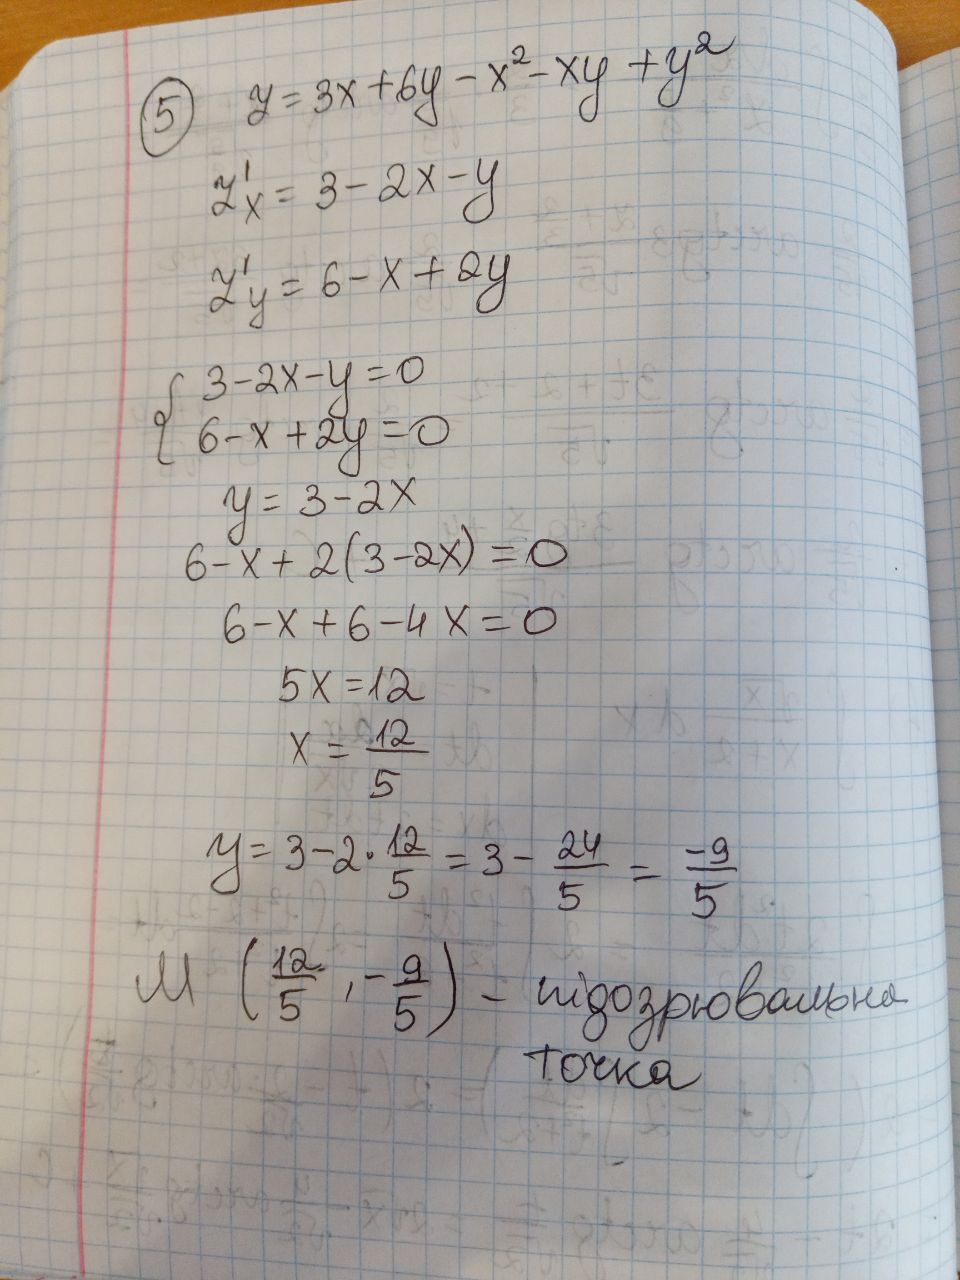 5 z = 3x + 6y - x² - xy + y²
z'x = 3 - 2x - y
z'y = 6 - x + 2y
{ 3 - 2x - y = 0
6 - x + 2y = 0
y = 3 - 2x
6 - x + 2(3 - 2x) = 0
6 - x + 6 - 4x = 0
5x = 12
x = 12/5
y = 3 - 2 · 12/5 = 3 - 24/5 = -9/5
M (12/5, -9/5) - підозрювальна
точка